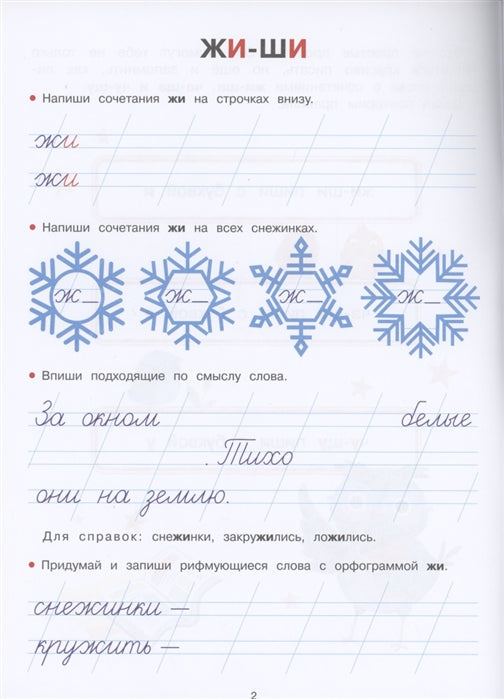 ЖИ-ШИ
• Напиши сочетания жи на строчках внизу.
жи
жи
• Напиши сочетания жи на всех снежинках.
ж_ ж_ ж_ ж_
• Впиши подходящие по смыслу слова.
За окном белые
. Тихо
они на землю.
Для справок: снежинки, закружились, ложились.
• Придумай и запиши рифмующиеся слова с орфограммой жи.
снежинки —
кружить —
2